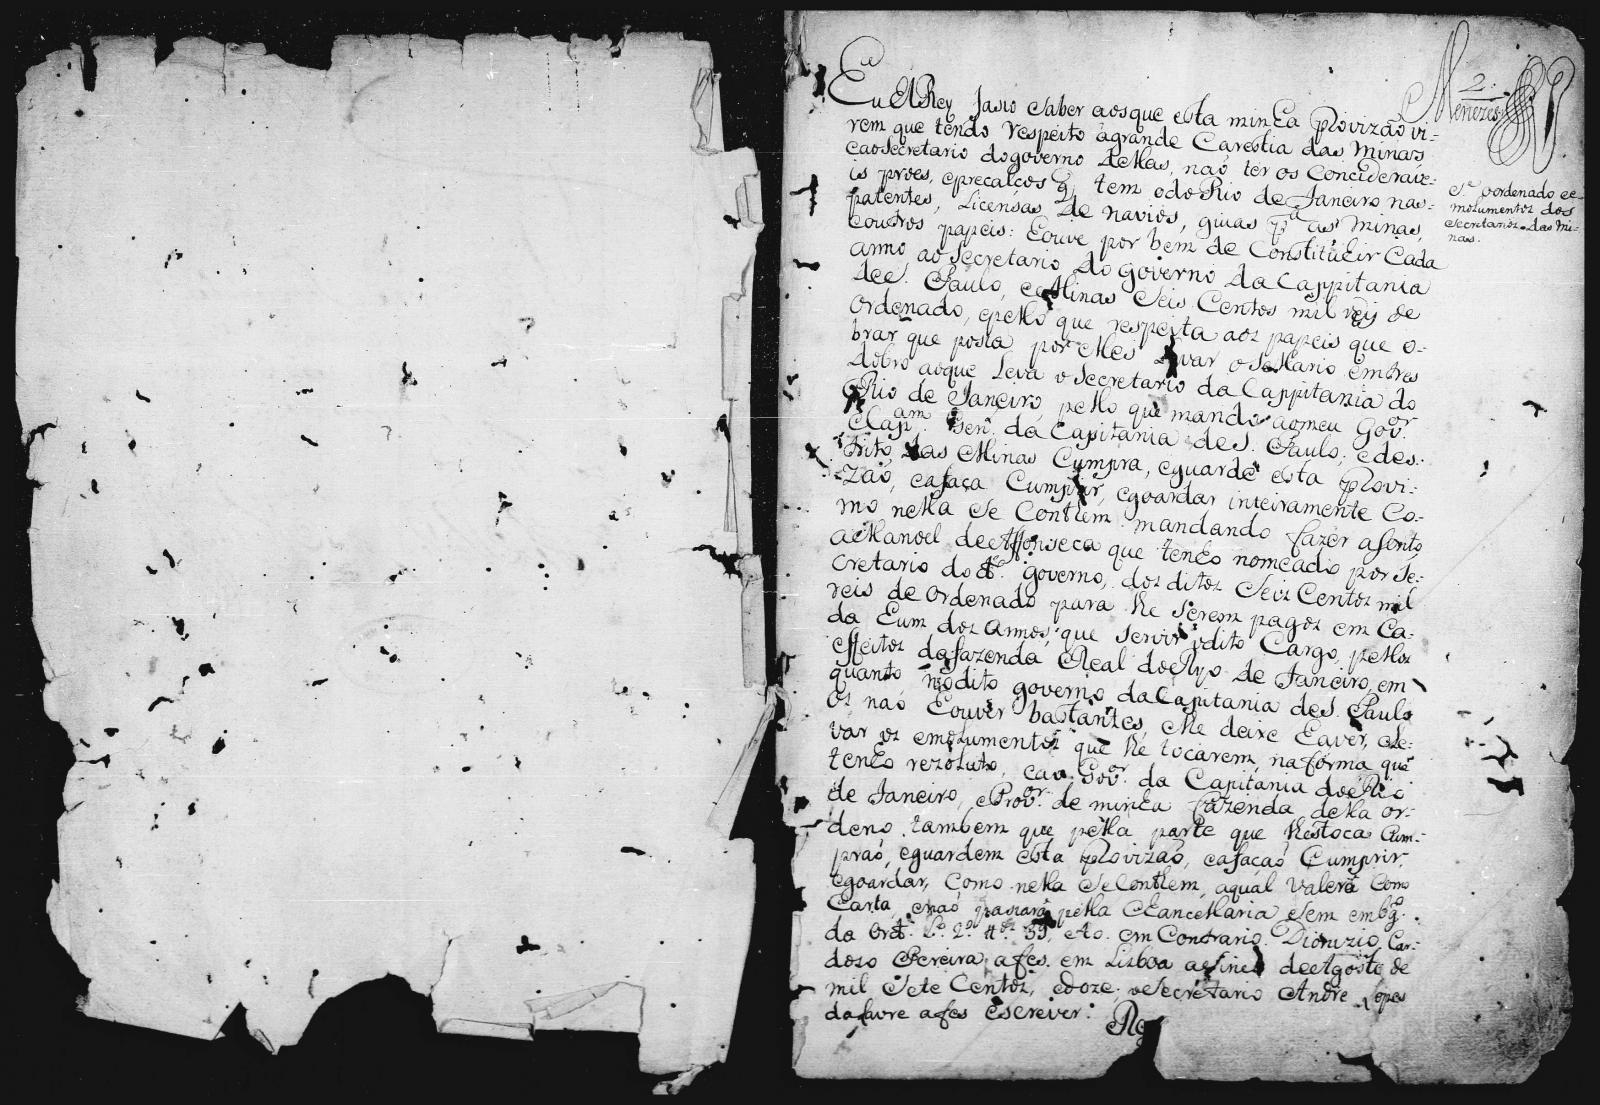 2.
Menezes
Eu ElRey faso saber aosque esta minha Provizaõ vi-
rem que tendo respeito ágrande Carestia das Minas
eaosecretario dogoverno dellas, naõ ter os Conciderave-
is proes, eprecalços q̃ tem odoRio de Janeiro nas
patentes, Licensas de navios, guias pª as Minas,
eoutros papeis: houve por bem de Constituhir Cada
anno ao Secretario do governo da Cappitania
deS. Paulo, eMinas Seis Centos mil reis de
ordenado, epello que respeita aos papeis que o-
brar que posa por elles Levar o sellario emtres
dobro aoque Leva o Secretario da Cappitania do
Rio de Janeiro, pello que mando aomeu Gov.or
eCap.am Gen.l da Capitania deS. Paulo, edes-
trito das Minas Cumpra, eguarde esta Provi-
zaõ, eafaça Cumprir, eguardar inteiramente Co-
mo nella Se Conthem mandando fazer asento
aManoel deAffonseca que tenho nomeado por Se-
cretario dod.o governo, dos ditos Seis Centos mil
reis de ordenado para lhe serem pagos em Ca-
da hum dos annos, que servir odito Cargo, pellos
effeitos dafazenda Real doRyo de Janeiro, em
quanto nodito governo daCapitania deS. Paulo
os naõ houver bastantes, elhe deixe haver, ele-
var os emolumentos que lhe tocarem, naforma que
tenho rezoluto, eao Gov.or da Capitania doRio
de Janeiro, eProv.or de minha fazenda della or-
deno tambem que pella parte que lhestoca Cum-
praõ, eguardem esta Provizaõ, eafaçaõ Cumprir,
eguardar, Como nella Se Conthem, aqual valerá Como
Carta, enaõ pasará pella Chancellaria Sem embg.o
da Ord. L.o 2.o tt.os 39, 40. em Contrario. Dionizio Car-
dozo Pereira afes. em Lisboa de Agosto de
mil Sete Centos, edoze; oSecretario Andre Lopes
dalavre afes escrever. Rey
S.e oordenado ee-
molumentos dos
secretarios das Mi-
nas.